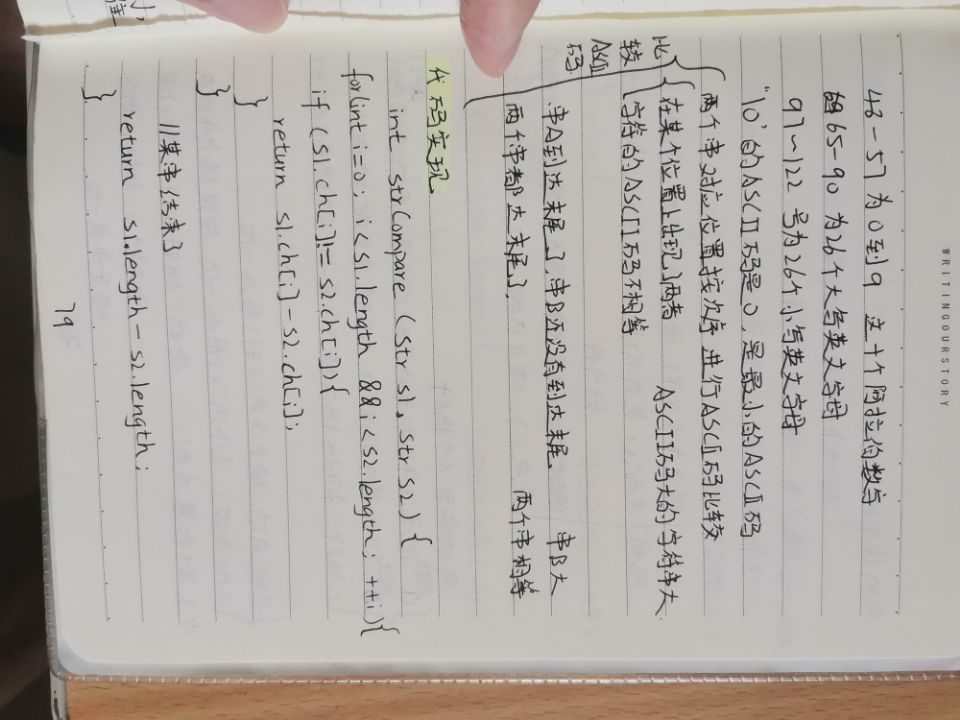 WRITINGOURSTORY
48-57为0到9 这十个阿拉伯数字
65-90为26个大写英文字母
97~122 号为26个小写英文字母
"\0'的ASCII码是0,是最小的ASCII码
两个串对应位置按次序进行ASCII码比较
比较ASCII码
在某个位置上出现了两者 ASCII码大的字符串大.
字符的ASCII码不相等
串A到达末尾了,串B还没有到达末尾. 串B大
两个串都达末尾了, 两个串相等
代码实现
int strCompare (Str s1, Str s2) {
for(int i=0; i<s1.length && i<s2.length; ++i){
if (s1.ch[i] != s2.ch[i]){
return s1.ch[i] - s2.ch[i];
}
}
//某串结束了
return s1.length - s2.length;
}
79